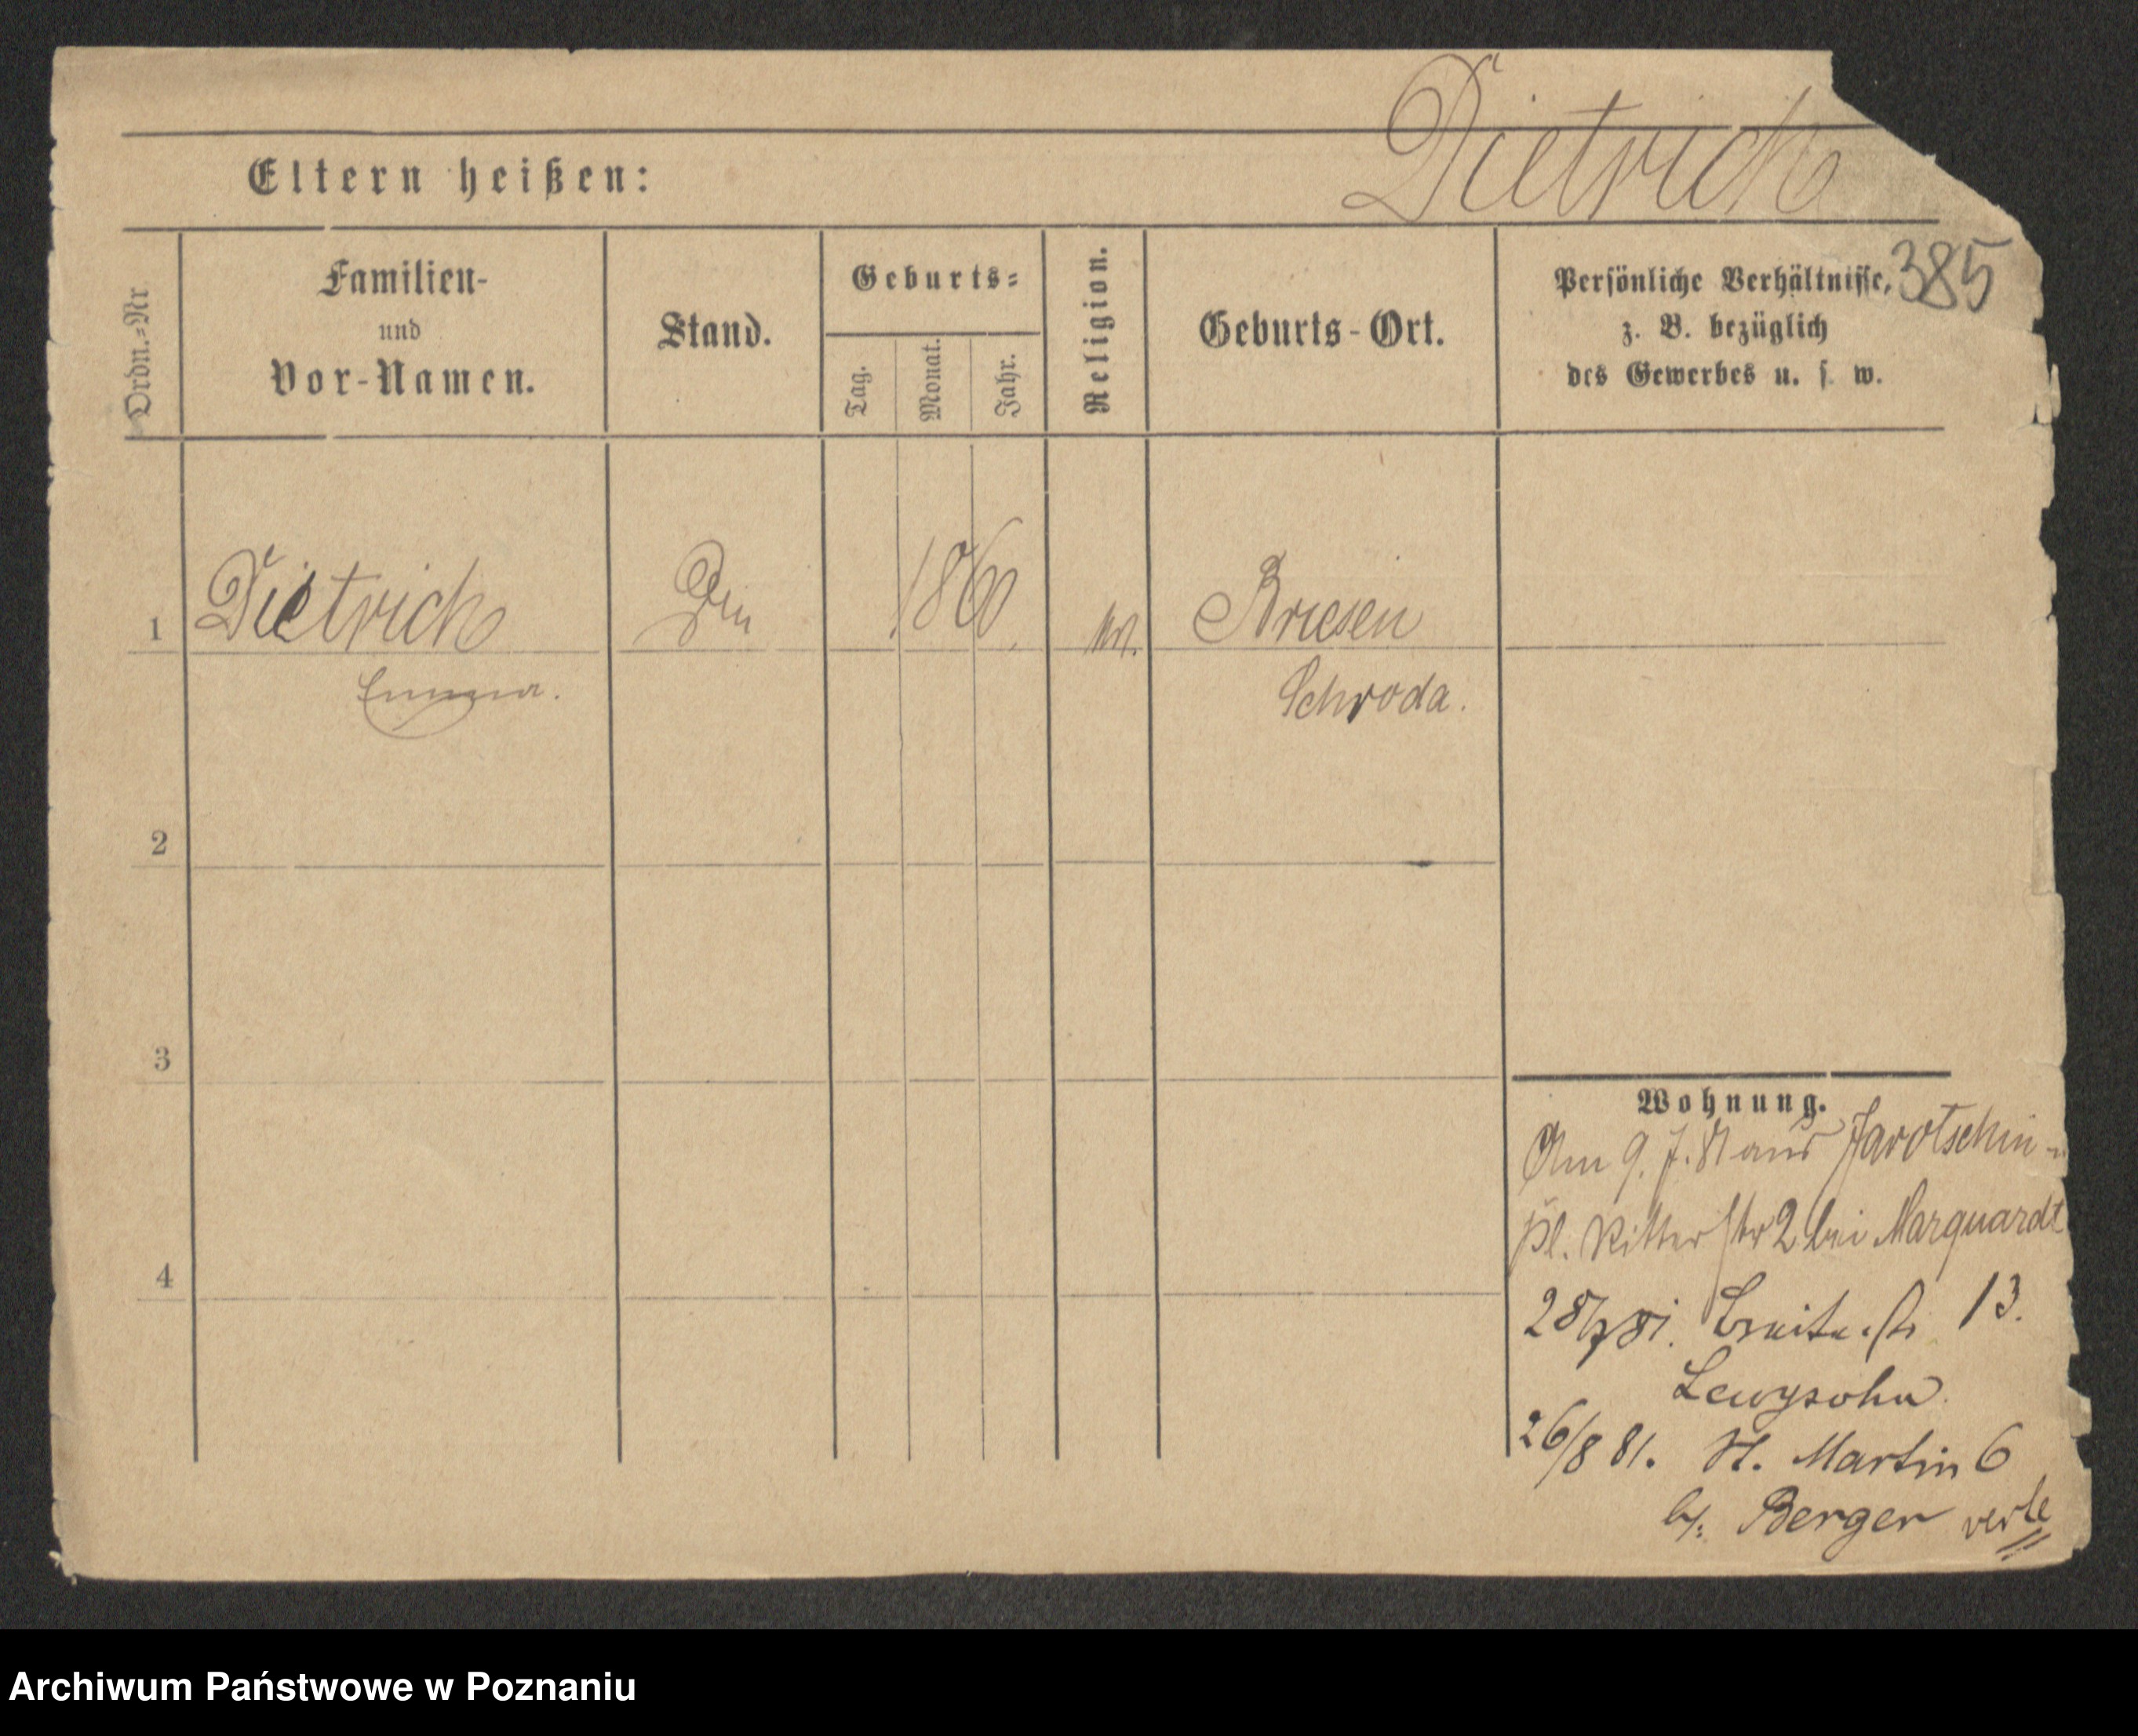 Dietrich
Eltern heißen:
385
Ordn.=Nr
Familien-
und
Vor-Namen.
Stand.
Geburts=
Tag.
Monat.
Jahr.
Religion.
Geburts-Ort.
Persönliche Verhältnisse,
z. B. bezüglich
des Gewerbes u. s. w.
1
Dietrich
1860
Briesen
Emma.
Schroda.
2
3
4
Wohnung.
Am 9. 7. 81 aus Jarotschin
pl. Ritterstr 2 bei Marquardt
28/7 81. Breitestr 13.
Lewysohn
26/8 81. St. Martin 6
b/. Berger
Archiwum Państwowe w Poznaniu